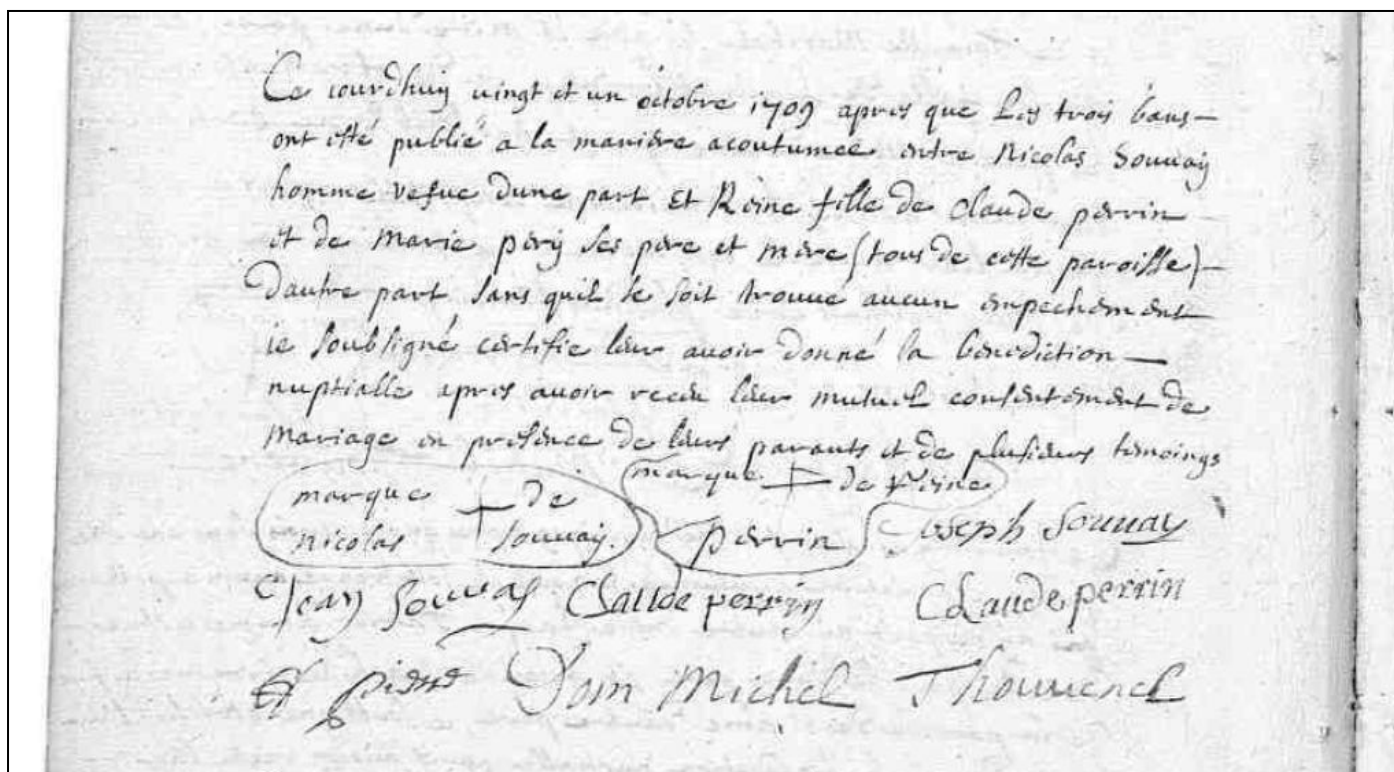 Ce iourdhuy vingt et un octobre 1709 apres que les trois bans
ont esté publié a la maniere acoutumee entre Nicolas Souuay
homme vefue dune part et Reine fille de Claude perrin
et de marie pery ses pere et mere (tous de cette paroisse)
dautre part sans quil se soit trouué aucun empechement
ie soubsigné certifie leur auoir donné la benediction
nuptialle apres auoir receu leur mutuel consentement de
mariage en presence de leurs parants et de plusieurs temoings
marque de Reine
marque de
nicolas souuay.
perrin
Joseph Souuay
Jean Souuay Claude perrin Claude perrin
pierre Dom Michel Thouuenel